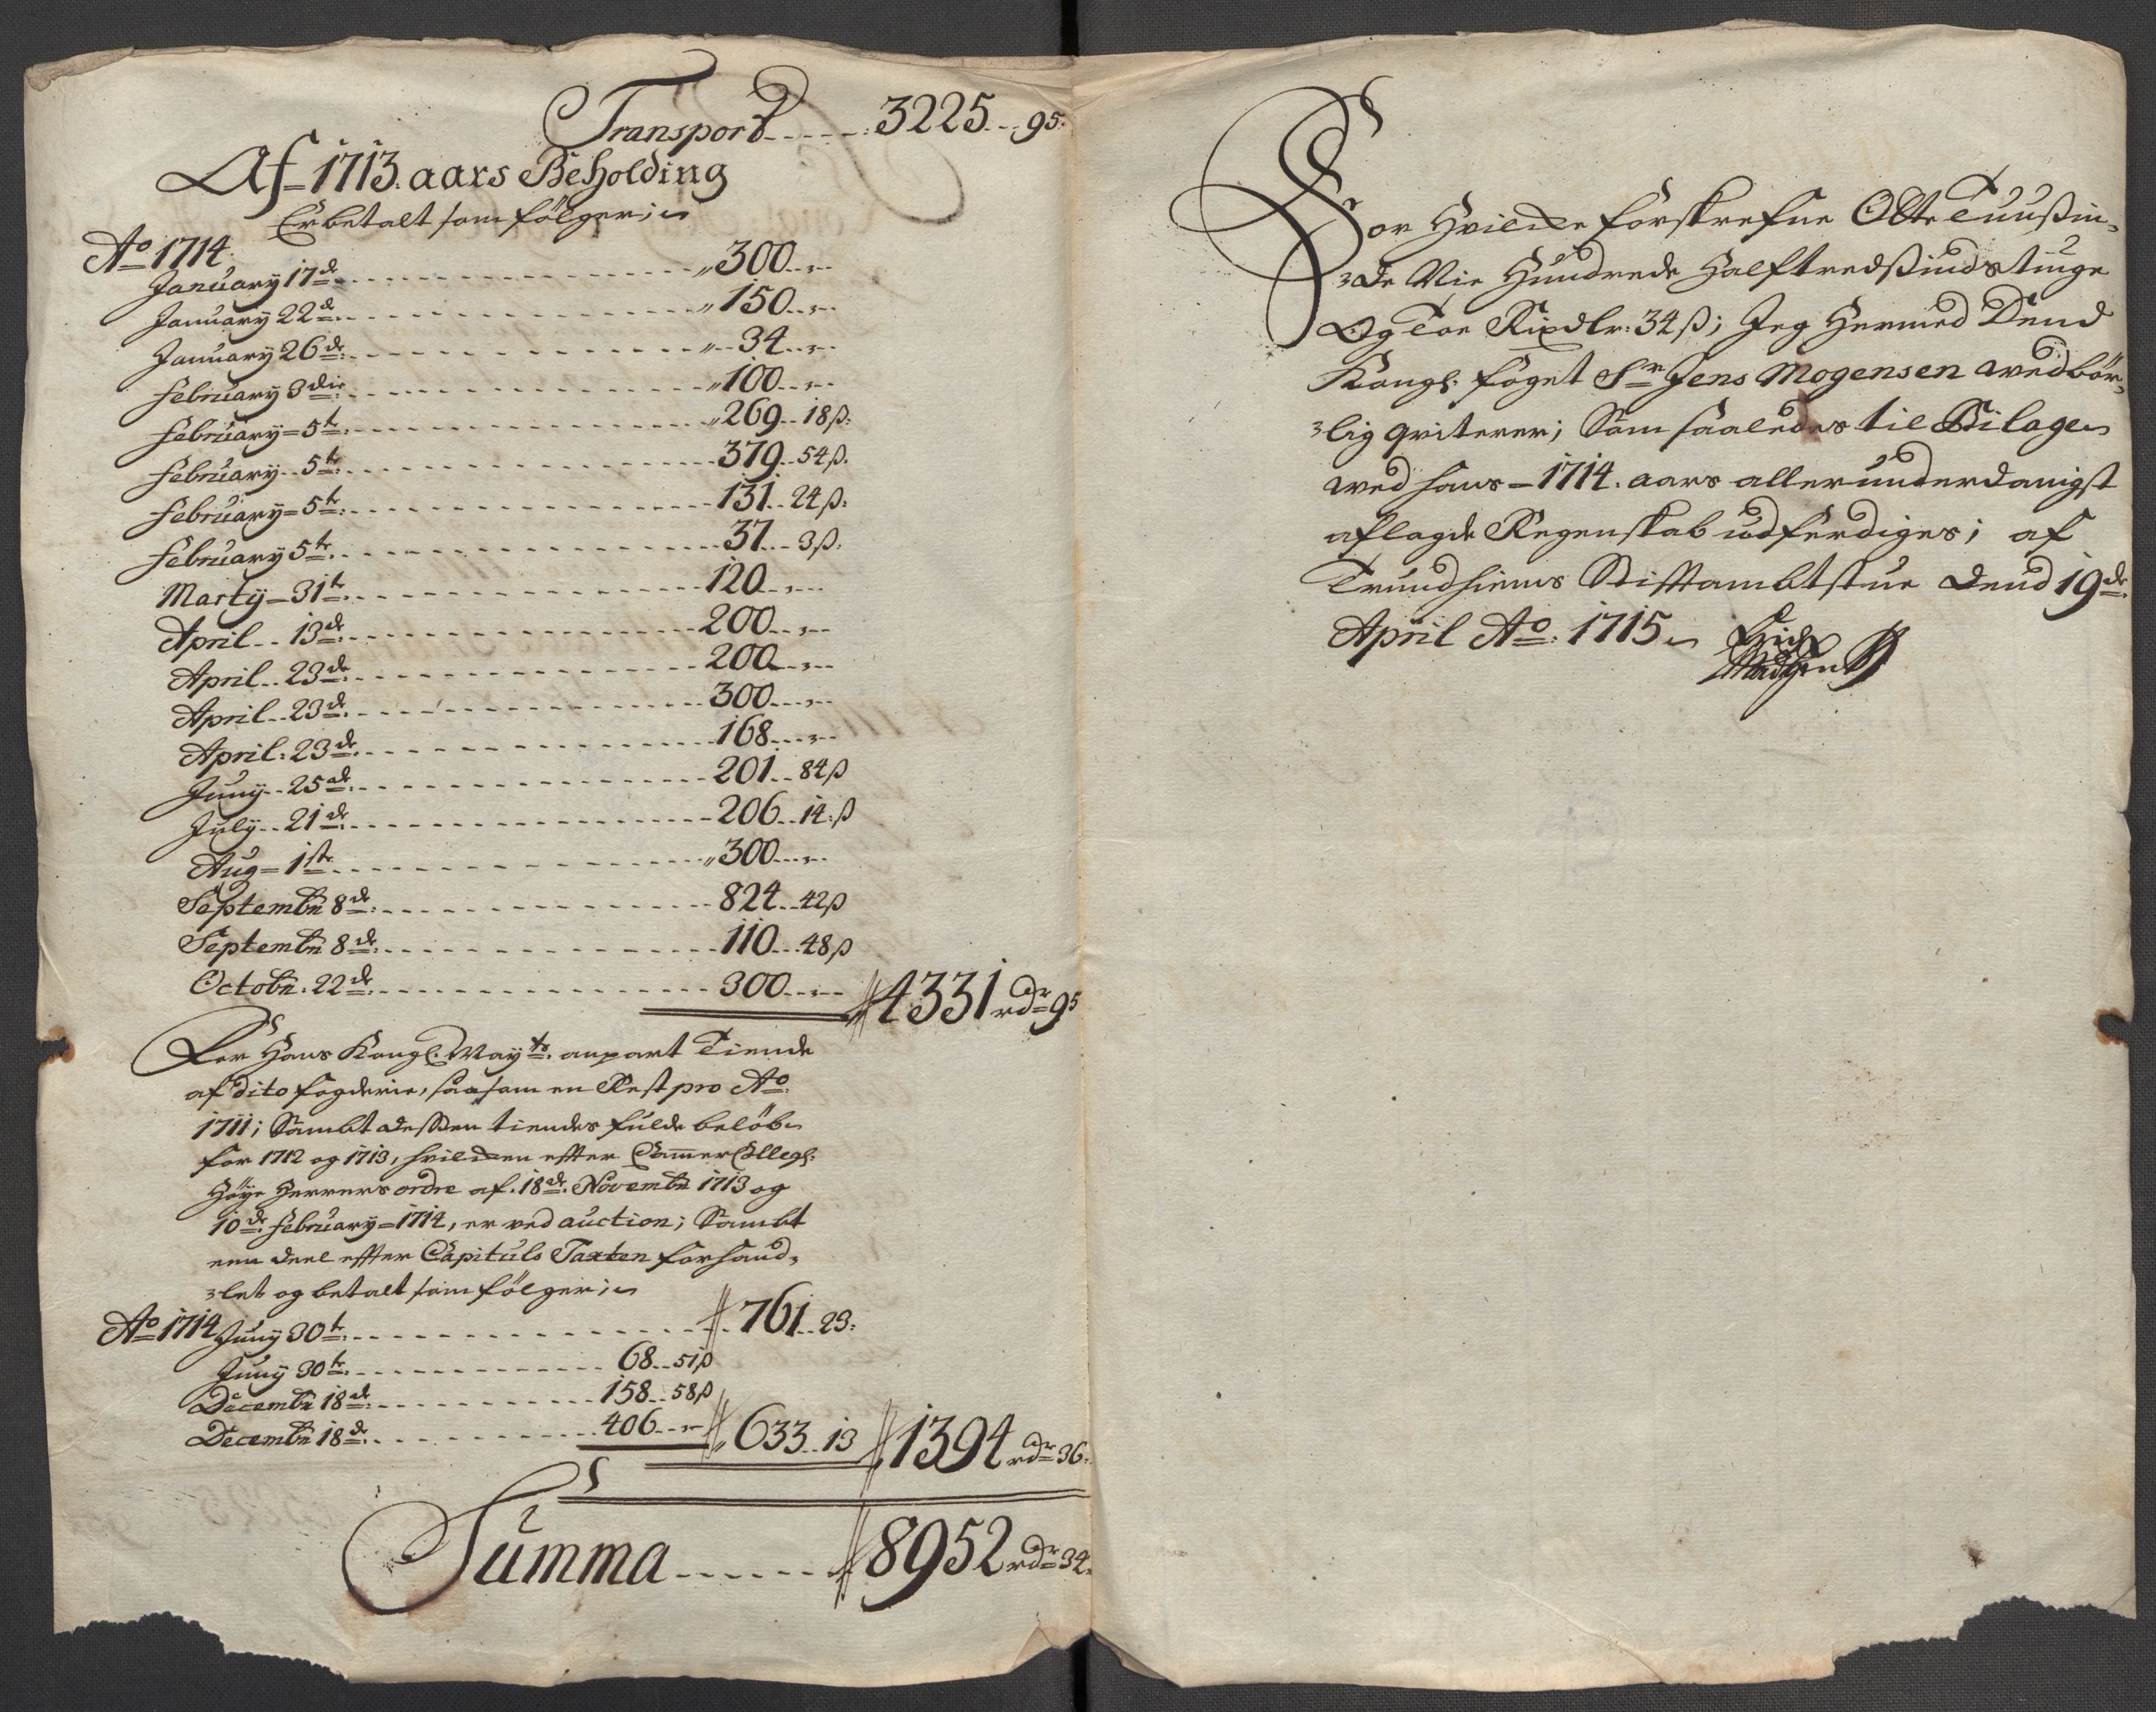 Transport 3225 95:
Af 1713 aars Beholding
Er betalt som fölger;
Ao 1714.
January 17de 300
January 22de 150
January 26de 34
february 3die 100
february 5te 269 18ß:
february 5te 379 54ß.
february 5te 131 24ß:
february 5te 37 3ß.
Marty 31te 120
April 13de 200
April 23de 200
April 23de 300
April 23de 168
Juny 25de 201 84ß
July 21de 206 14:ß
Aug 1ste 300
Septembr 8de 824 42ß
Septembr 8de 110 48ß
Octobr. 22de 300 4331 rdr 95
For Hans Kongl. Mayts. anpart Tiende
af dito fogderie, saasom en Rest pro Ao
1711; Sambt desSen tiendes fulde belöb
for 1712 og 1713, hvilcken effter CammerCollegl.
Höye Herrers ordre af 18de Novembr 1713 og
10de february 1714, er ved auction; Sambt
een deel effter Capituls Taxten forhand-
let og betalt som fölger;
Ao 1714 Juny 30te 761 23:
Juny 30te 68 51ß
Decembr 18de 158 58ß
Decembr 18de 406 633 13 1394 rdr 36.
Summa 8952 rdr 34.
For Hvilcke forskrefne Otte Tuußin-
de Nie Hundrede Halftredßindstiuge
Og Toe Rixdlr: 34ß; Jeg Hermed Dend
Kongl. foget Sr Jens Mogensen wedbör-
lig qviterer; Som saaledes til Bilage
wed hans 1714. aars allerunderdanigst
aflagde Regenskab udferdiges; af
Trundhiems Stifftambtstue dend 19de
April Ao: 1715